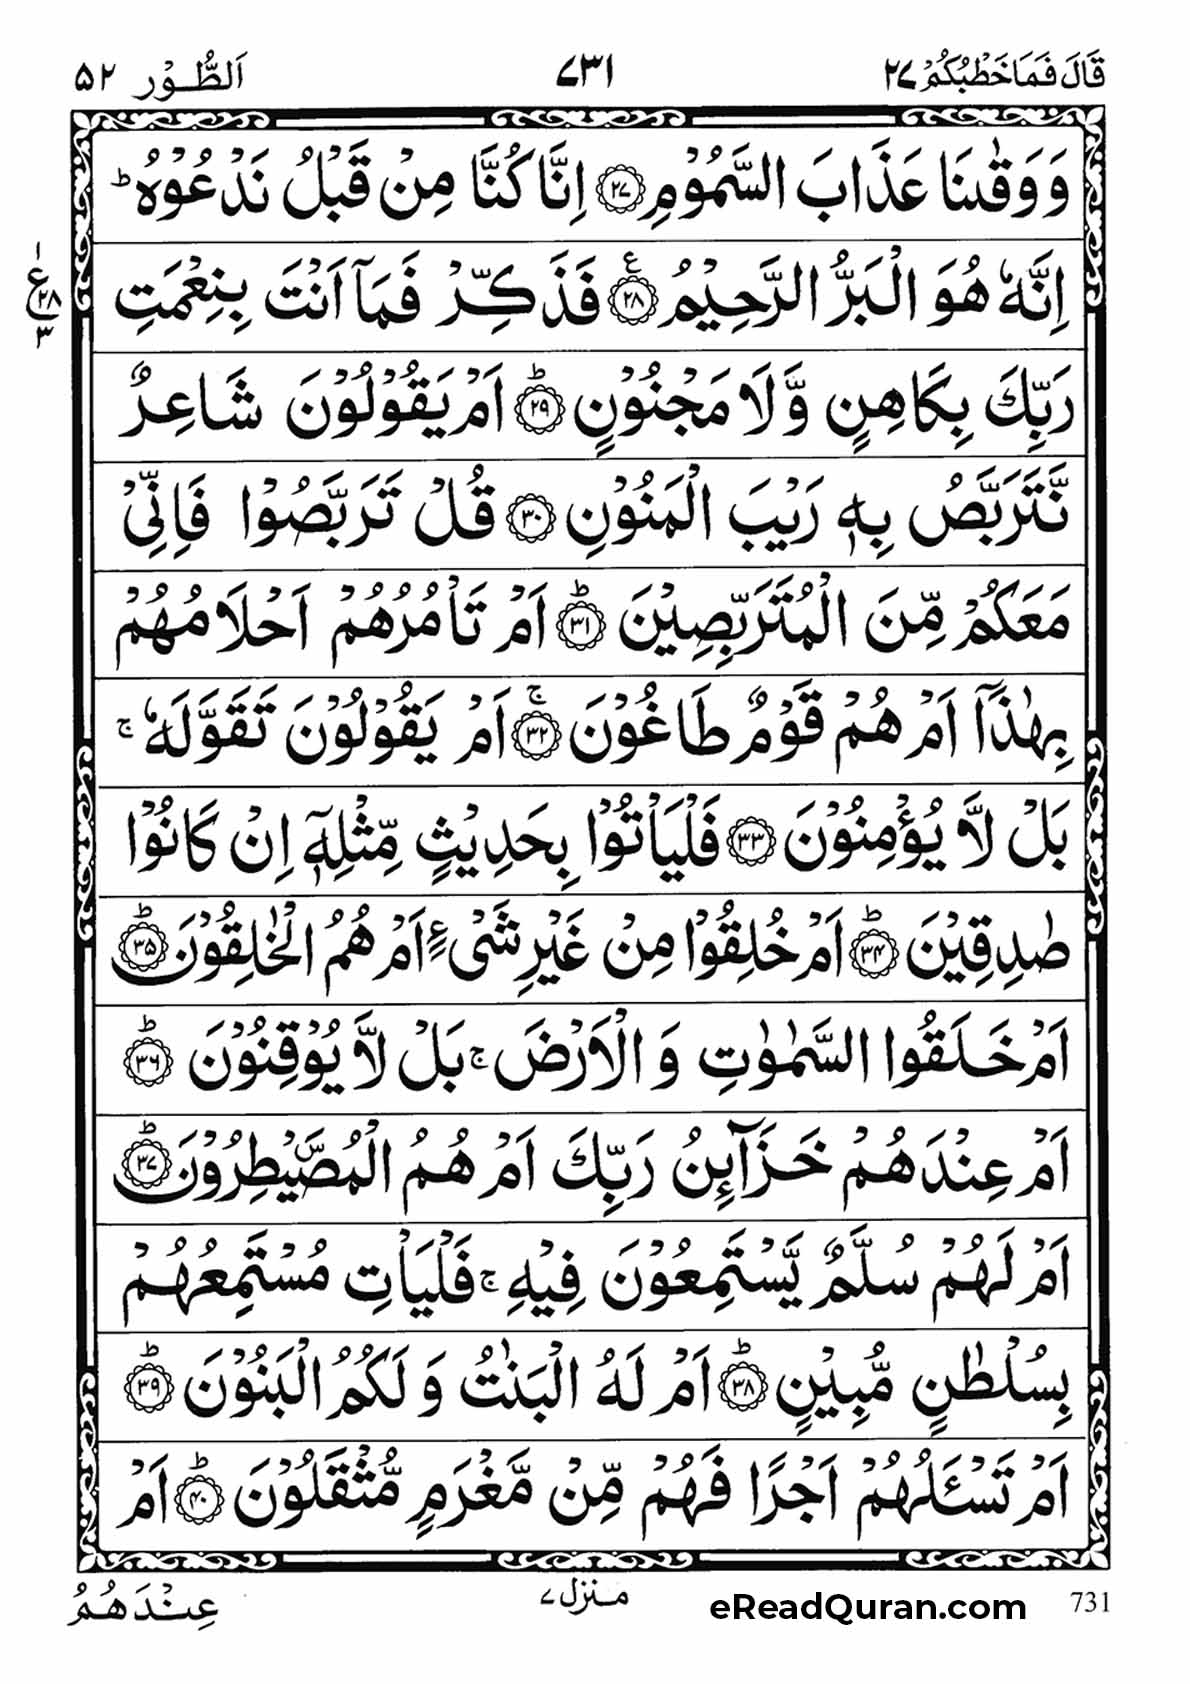 قَالَ فَمَا خَطْبُكُمْ ۲۷ ۷۳۱ اَلطُّوْر ۵۲
وَوَقٰىنَا عَذَابَ السَّمُوْمِ ﴿۲۷﴾ اِنَّا كُنَّا مِنْ قَبْلُ نَدْعُوْهُ ؕ
اِنَّهٗ هُوَ الْبَرُّ الرَّحِيْمُ ﴿۲۸﴾ ع فَذَكِّرْ فَمَاۤ اَنْتَ بِنِعْمَتِ
ع ۱ ۲۸ ۳
رَبِّكَ بِكَاهِنٍ وَّلَا مَجْنُوْنٍ ﴿۲۹﴾ ؕ اَمْ يَقُوْلُوْنَ شَاعِرٌ
نَّتَرَبَّصُ بِهٖ رَيْبَ الْمَنُوْنِ ﴿۳۰﴾ قُلْ تَرَبَّصُوْا فَاِنِّىْ
مَعَكُمْ مِّنَ الْمُتَرَبِّصِيْنَ ﴿۳۱﴾ ؕ اَمْ تَاْمُرُهُمْ اَحْلَامُهُمْ
بِهٰذَاۤ اَمْ هُمْ قَوْمٌ طَاغُوْنَ ﴿۳۲﴾ ۚ اَمْ يَقُوْلُوْنَ تَقَوَّلَهٗ ۚ
بَلْ لَّا يُؤْمِنُوْنَ ﴿۳۳﴾ فَلْيَاْتُوْا بِحَدِيْثٍ مِّثْلِهٖۤ اِنْ كَانُوْا
صٰدِقِيْنَ ﴿۳۴﴾ ؕ اَمْ خُلِقُوْا مِنْ غَيْرِ شَىْءٍ اَمْ هُمُ الْخٰلِقُوْنَ ﴿۳۵﴾ ؕ
اَمْ خَلَقُوا السَّمٰوٰتِ وَ الْاَرْضَ ۚ بَلْ لَّا يُوْقِنُوْنَ ﴿۳۶﴾ ؕ
اَمْ عِنْدَهُمْ خَزَآئِنُ رَبِّكَ اَمْ هُمُ الْمُصَۜيْطِرُوْنَ ﴿۳۷﴾ ؕ
اَمْ لَهُمْ سُلَّمٌ يَّسْتَمِعُوْنَ فِيْهِ ۚ فَلْيَاْتِ مُسْتَمِعُهُمْ
بِسُلْطٰنٍ مُّبِيْنٍ ﴿۳۸﴾ ؕ اَمْ لَهُ الْبَنٰتُ وَ لَكُمُ الْبَنُوْنَ ﴿۳۹﴾ ؕ
اَمْ تَسْـَٔلُهُمْ اَجْرًا فَهُمْ مِّنْ مَّغْرَمٍ مُّثْقَلُوْنَ ﴿۴۰﴾ ؕ اَمْ
عِنْدَهُمُ منزل ۷ eReadQuran.com 731